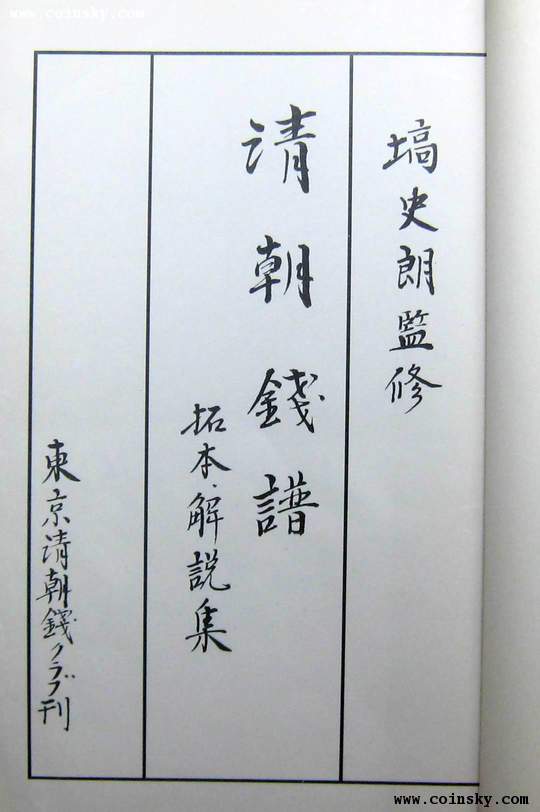 塙史朗監修
清朝錢譜
拓本・解説集
東京清朝錢クラブ刊
www.coinsky.com
www.coinsky.com